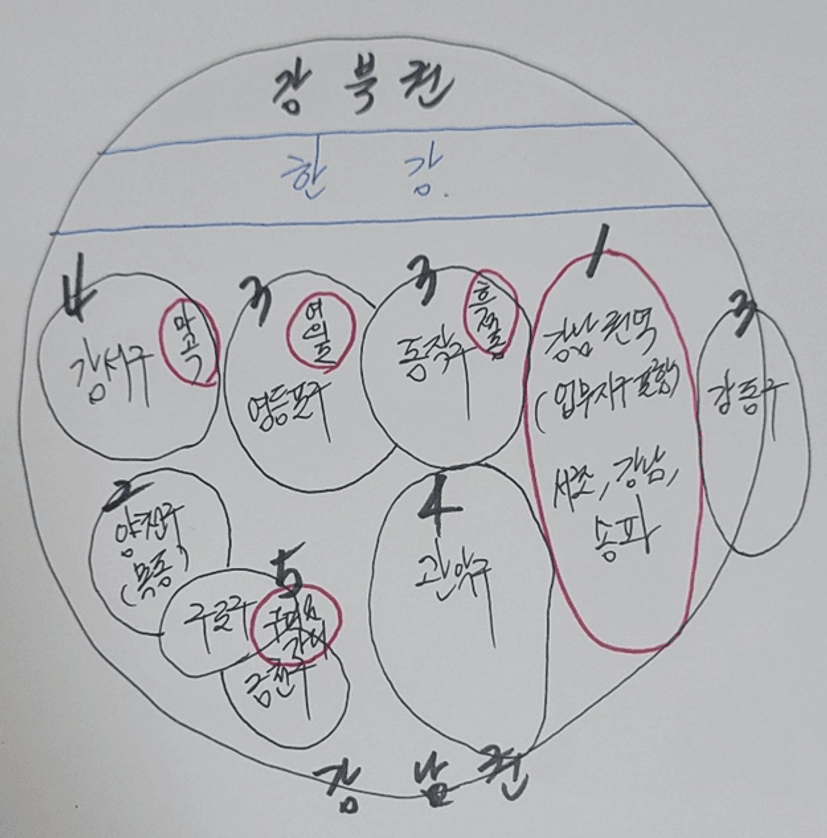 강 북 권
한 강.
4
강서구
마곡
3
여의도
영등포구
3
동작구
흑석동
1
강남 권역
(업무지구 포함)
서초, 강남,
송파
3
강동구
2
양천구
(목동)
구로구
5
금천구
4
관악구
강 남 권